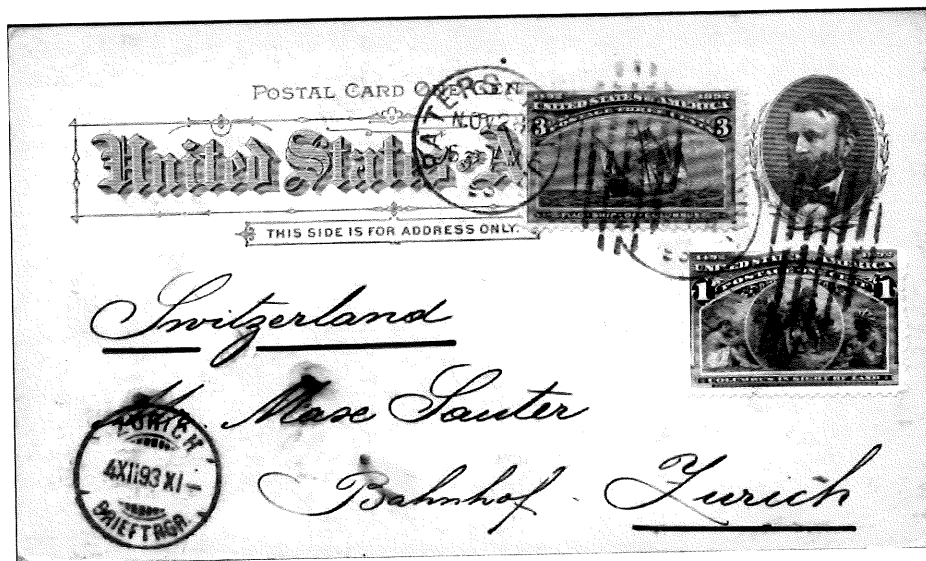 POSTAL CARD ONE CENT
United States
THIS SIDE IS FOR ADDRESS ONLY.
PATERS
NOV 2
1492 1892
UNITED STATES OF AMERICA
3 3
FLAG SHIP OF COLUMBUS
1492 1892
UNITED STATES OF AMERICA
POSTAGE ONE CENT
1 1
COLUMBUS IN SIGHT OF LAND
Switzerland
M. Max Sauter
Bahnhof. Zurich
ZÜRICH
4XII93 XI–
BRIEFTRGR.